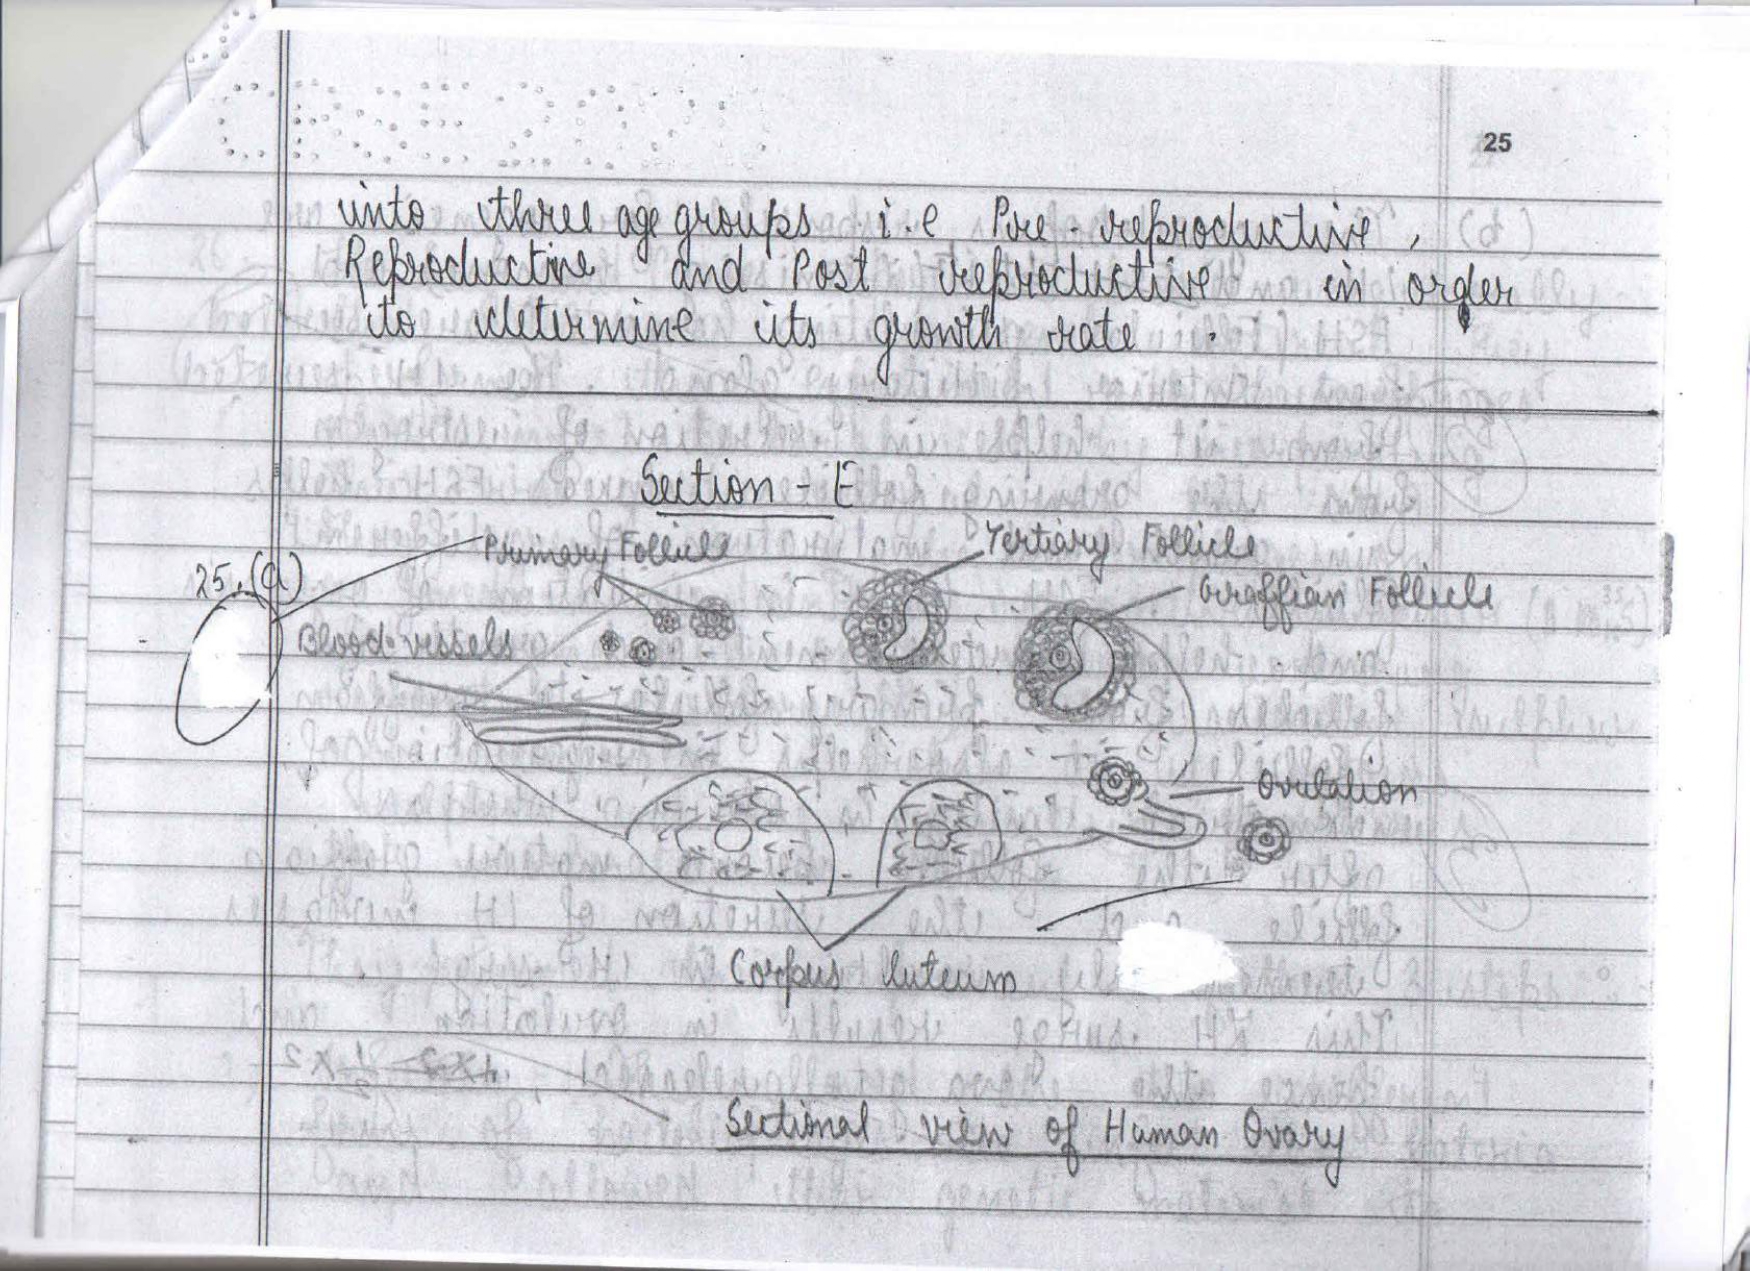 25
into three age groups i.e Pre-reproductive,
Reproductive and Post reproductive in order
to determine its growth rate.
Section - E
Primary Follicle
Tertiary Follicle
25.(a)
Graffian Follicle
Blood vessels
Ovulation
Corpus luteum
Sectional view of Human Ovary